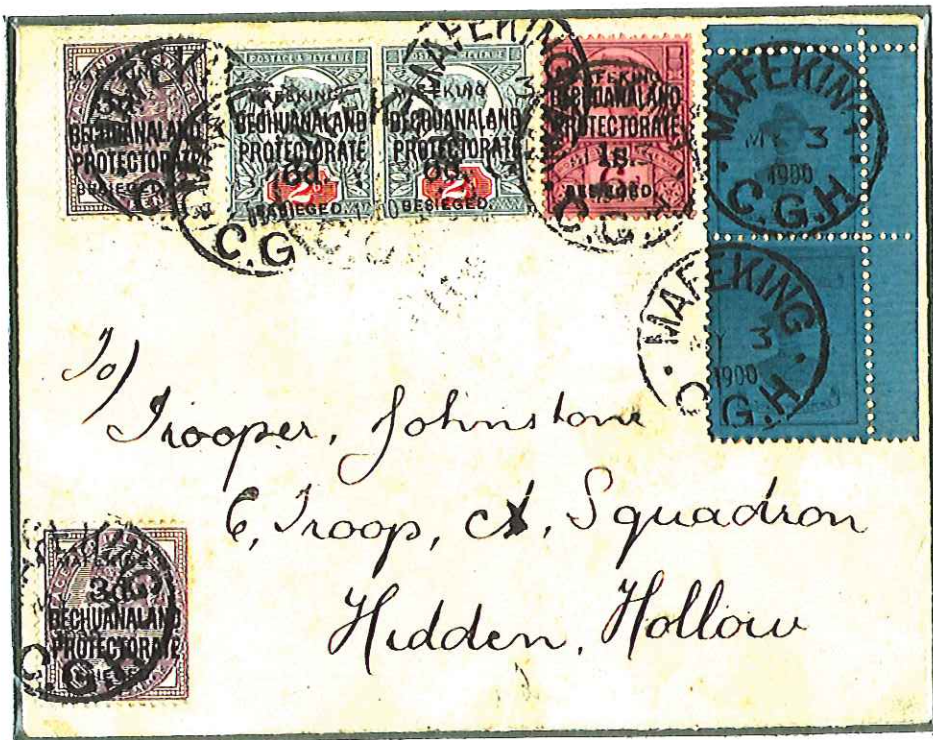 MAFEKING
BECHUANALAND
PROTECTORATE
BESIEGED
POSTAGE & REVENUE
MAFEKING
BECHUANALAND
PROTECTORATE
6d.
2d
BESIEGED
POSTAGE & REVENUE
MAFEKING
BECHUANALAND
PROTECTORATE
6d.
2d
BESIEGED
MAFEKING
BECHUANALAND
PROTECTORATE
1s.
BESIEGED
MAFEKING
MY 3
1900
C.G.H
MAFEKING
MY 3
1900
C.G.H
MAFEKING
C.G.H
To/
Trooper, Johnstone
6, Troop, A, Squadron
Hidden, Hollow
MAFEKING
3d.
BECHUANALAND
PROTECTORATE
C.G.H